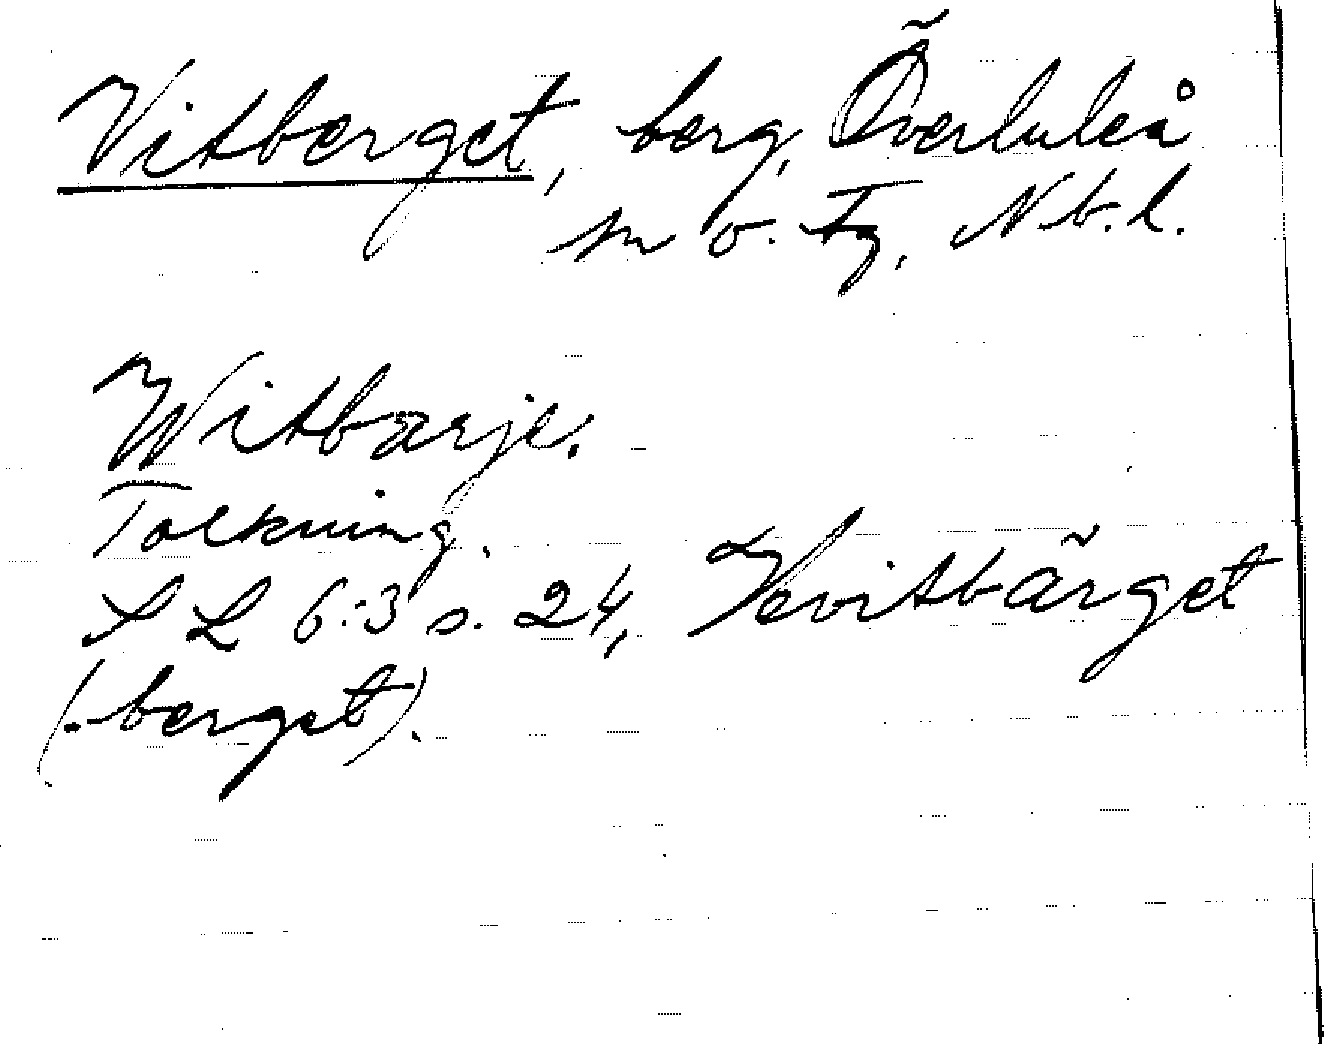 Vitberget, berg, Överluleå
sn o. tg, Nb.l.
Witbärje.
Tolkning.
S L 6:3 s. 24, Kvitbärget
(-berget).